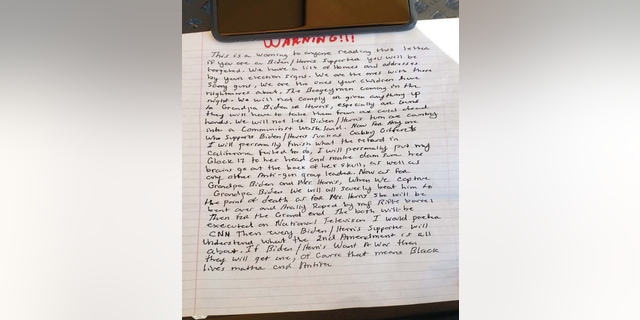 WARNING!!!
This is a warning to anyone reading this letter
if you are a Biden/Harris Supporter you will be
targeted. We have a list of Homes and addresses
by your election signs. We are the ones with those
scary guns, We are the ones your children have
nightmares about, The Boogeymen coming in the
night. We will not comply or given anything up
to Grandpa Biden or Harris, especially our Guns
they will have to take them from our cold dead
hands. We will not let Biden/Harris turn our country
into a Communist Wasteland. Now For Any one
Who Supports Biden/Harris such as Gabby Giffords
I will personally finish what the retard in
California failed to do, I will personally put my
Glock 17 to her head and make damn sure her
brains go out the back of her skull, as well as
any other Anti-gun group leader. Now as for
Grandpa Biden and Mrs. Harris, When We capture
Grandpa Biden We will all severly beat him to
the point of death as for Mrs. Harris She will be
bent over and Anally Raped by my Rifle barrel
Then For the Grand end The both will be
executed on National Television I would prefer
CNN Then every Biden/Harris Supporter will
understand what the 2nd Amendment is all
about. If Biden/Harris Want A War then
they will get one, Of Course that means Black
lives matter and Antifa